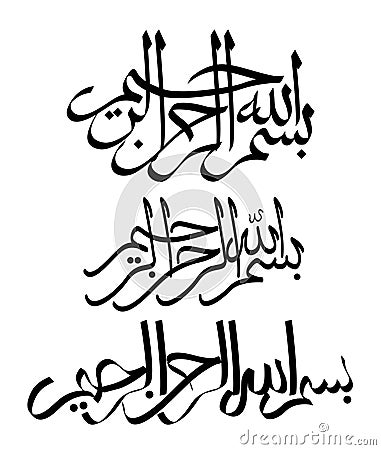 بسم الله الرحمن الرحيم
بسم الله الرحمن الرحيم
بسم الله الرحمن الرحيم
dreamstime.com